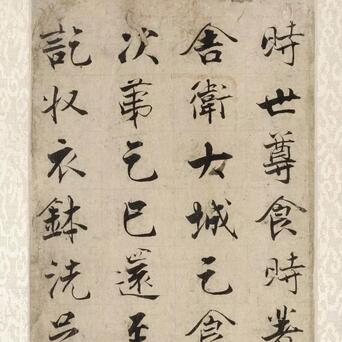 時世尊食時著
舍衛大城乞食
次第乞已還至
訖收衣鉢洗足